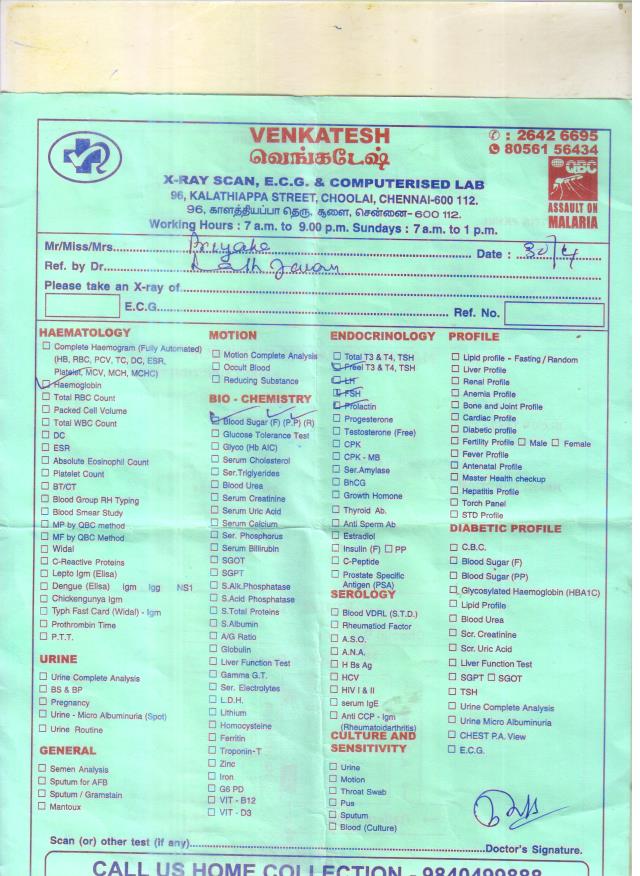 VENKATESH
வெங்கடேஷ்
✆ : 2642 6695
80561 56434
X-RAY SCAN, E.C.G. & COMPUTERISED LAB
96, KALATHIAPPA STREET, CHOOLAI, CHENNAI-600 112.
96, காளத்தியப்பா தெரு, சூளை, சென்னை-600 112.
Working Hours : 7 a.m. to 9.00 p.m. Sundays : 7 a.m. to 1 p.m.
QBC
ASSAULT ON
MALARIA
Mr/Miss/Mrs. Date : 30/4
Ref. by Dr.
Please take an X-ray of
E.C.G. Ref. No.
HAEMATOLOGY
Complete Haemogram (Fully Automated)
(HB, RBC, PCV, TC, DC, ESR,
Platelet, MCV, MCH, MCHC)
Haemoglobin
Total RBC Count
Packed Cell Volume
Total WBC Count
DC
ESR
Absolute Eosinophil Count
Platelet Count
BT/CT
Blood Group RH Typing
Blood Smear Study
MP by QBC method
MF by QBC Method
Widal
C-Reactive Proteins
Lepto Igm (Elisa)
Dengue (Elisa) Igm Igg NS1
Chickengunya Igm
Typh Fast Card (Widal) - Igm
Prothrombin Time
P.T.T.
URINE
Urine Complete Analysis
BS & BP
Pregnancy
Urine - Micro Albuminuria (Spot)
Urine Routine
GENERAL
Semen Analysis
Sputum for AFB
Sputum / Gramstain
Mantoux
MOTION
Motion Complete Analysis
Occult Blood
Reducing Substance
BIO - CHEMISTRY
Blood Sugar (F) (P.P) (R)
Glucose Tolerance Test
Glyco (Hb AIC)
Serum Cholesterol
Ser.Triglyerides
Blood Urea
Serum Creatinine
Serum Uric Acid
Serum Calcium
Ser. Phosphorus
Serum Billirubin
SGOT
SGPT
S.Alk.Phosphatase
S.Acid Phosphatase
S.Total Proteins
S.Albumin
A/G Ratio
Globulin
Liver Function Test
Gamma G.T.
Ser. Electrolytes
L.D.H.
Lithium
Homocysteine
Ferritin
Troponin-T
Zinc
Iron
G6 PD
VIT - B12
VIT - D3
ENDOCRINOLOGY
Total T3 & T4, TSH
Freel T3 & T4, TSH
LH
FSH
Prolactin
Progesterone
Testosterone (Free)
CPK
CPK - MB
Ser.Amylase
BhCG
Growth Homone
Thyroid Ab.
Anti Sperm Ab
Estradiol
Insulin (F) PP
C-Peptide
Prostate Specific
Antigen (PSA)
SEROLOGY
Blood VDRL (S.T.D.)
Rheumatiod Factor
A.S.O.
A.N.A.
H Bs Ag
HCV
HIV I & II
serum IgE
Anti CCP - Igm
(Rheumatoidarthritis)
CULTURE AND
SENSITIVITY
Urine
Motion
Throat Swab
Pus
Sputum
Blood (Culture)
PROFILE
Lipid profile - Fasting / Random
Liver Profile
Renal Profile
Anemia Profile
Bone and Joint Profile
Cardiac Profile
Diabetic profile
Fertility Profile Male Female
Fever Profile
Antenatal Profile
Master Health checkup
Hepatitis Profile
Torch Panel
STD Profile
DIABETIC PROFILE
C.B.C.
Blood Sugar (F)
Blood Sugar (PP)
Glycosylated Haemoglobin (HBA1C)
Lipid Profile
Blood Urea
Scr. Creatinine
Scr. Uric Acid
Liver Function Test
SGPT SGOT
TSH
Urine Complete Analysis
Urine Micro Albuminuria
CHEST P.A. View
E.C.G.
Scan (or) other test (if any) Doctor's Signature.
CALL US HOME COLLECTION - 9840499888